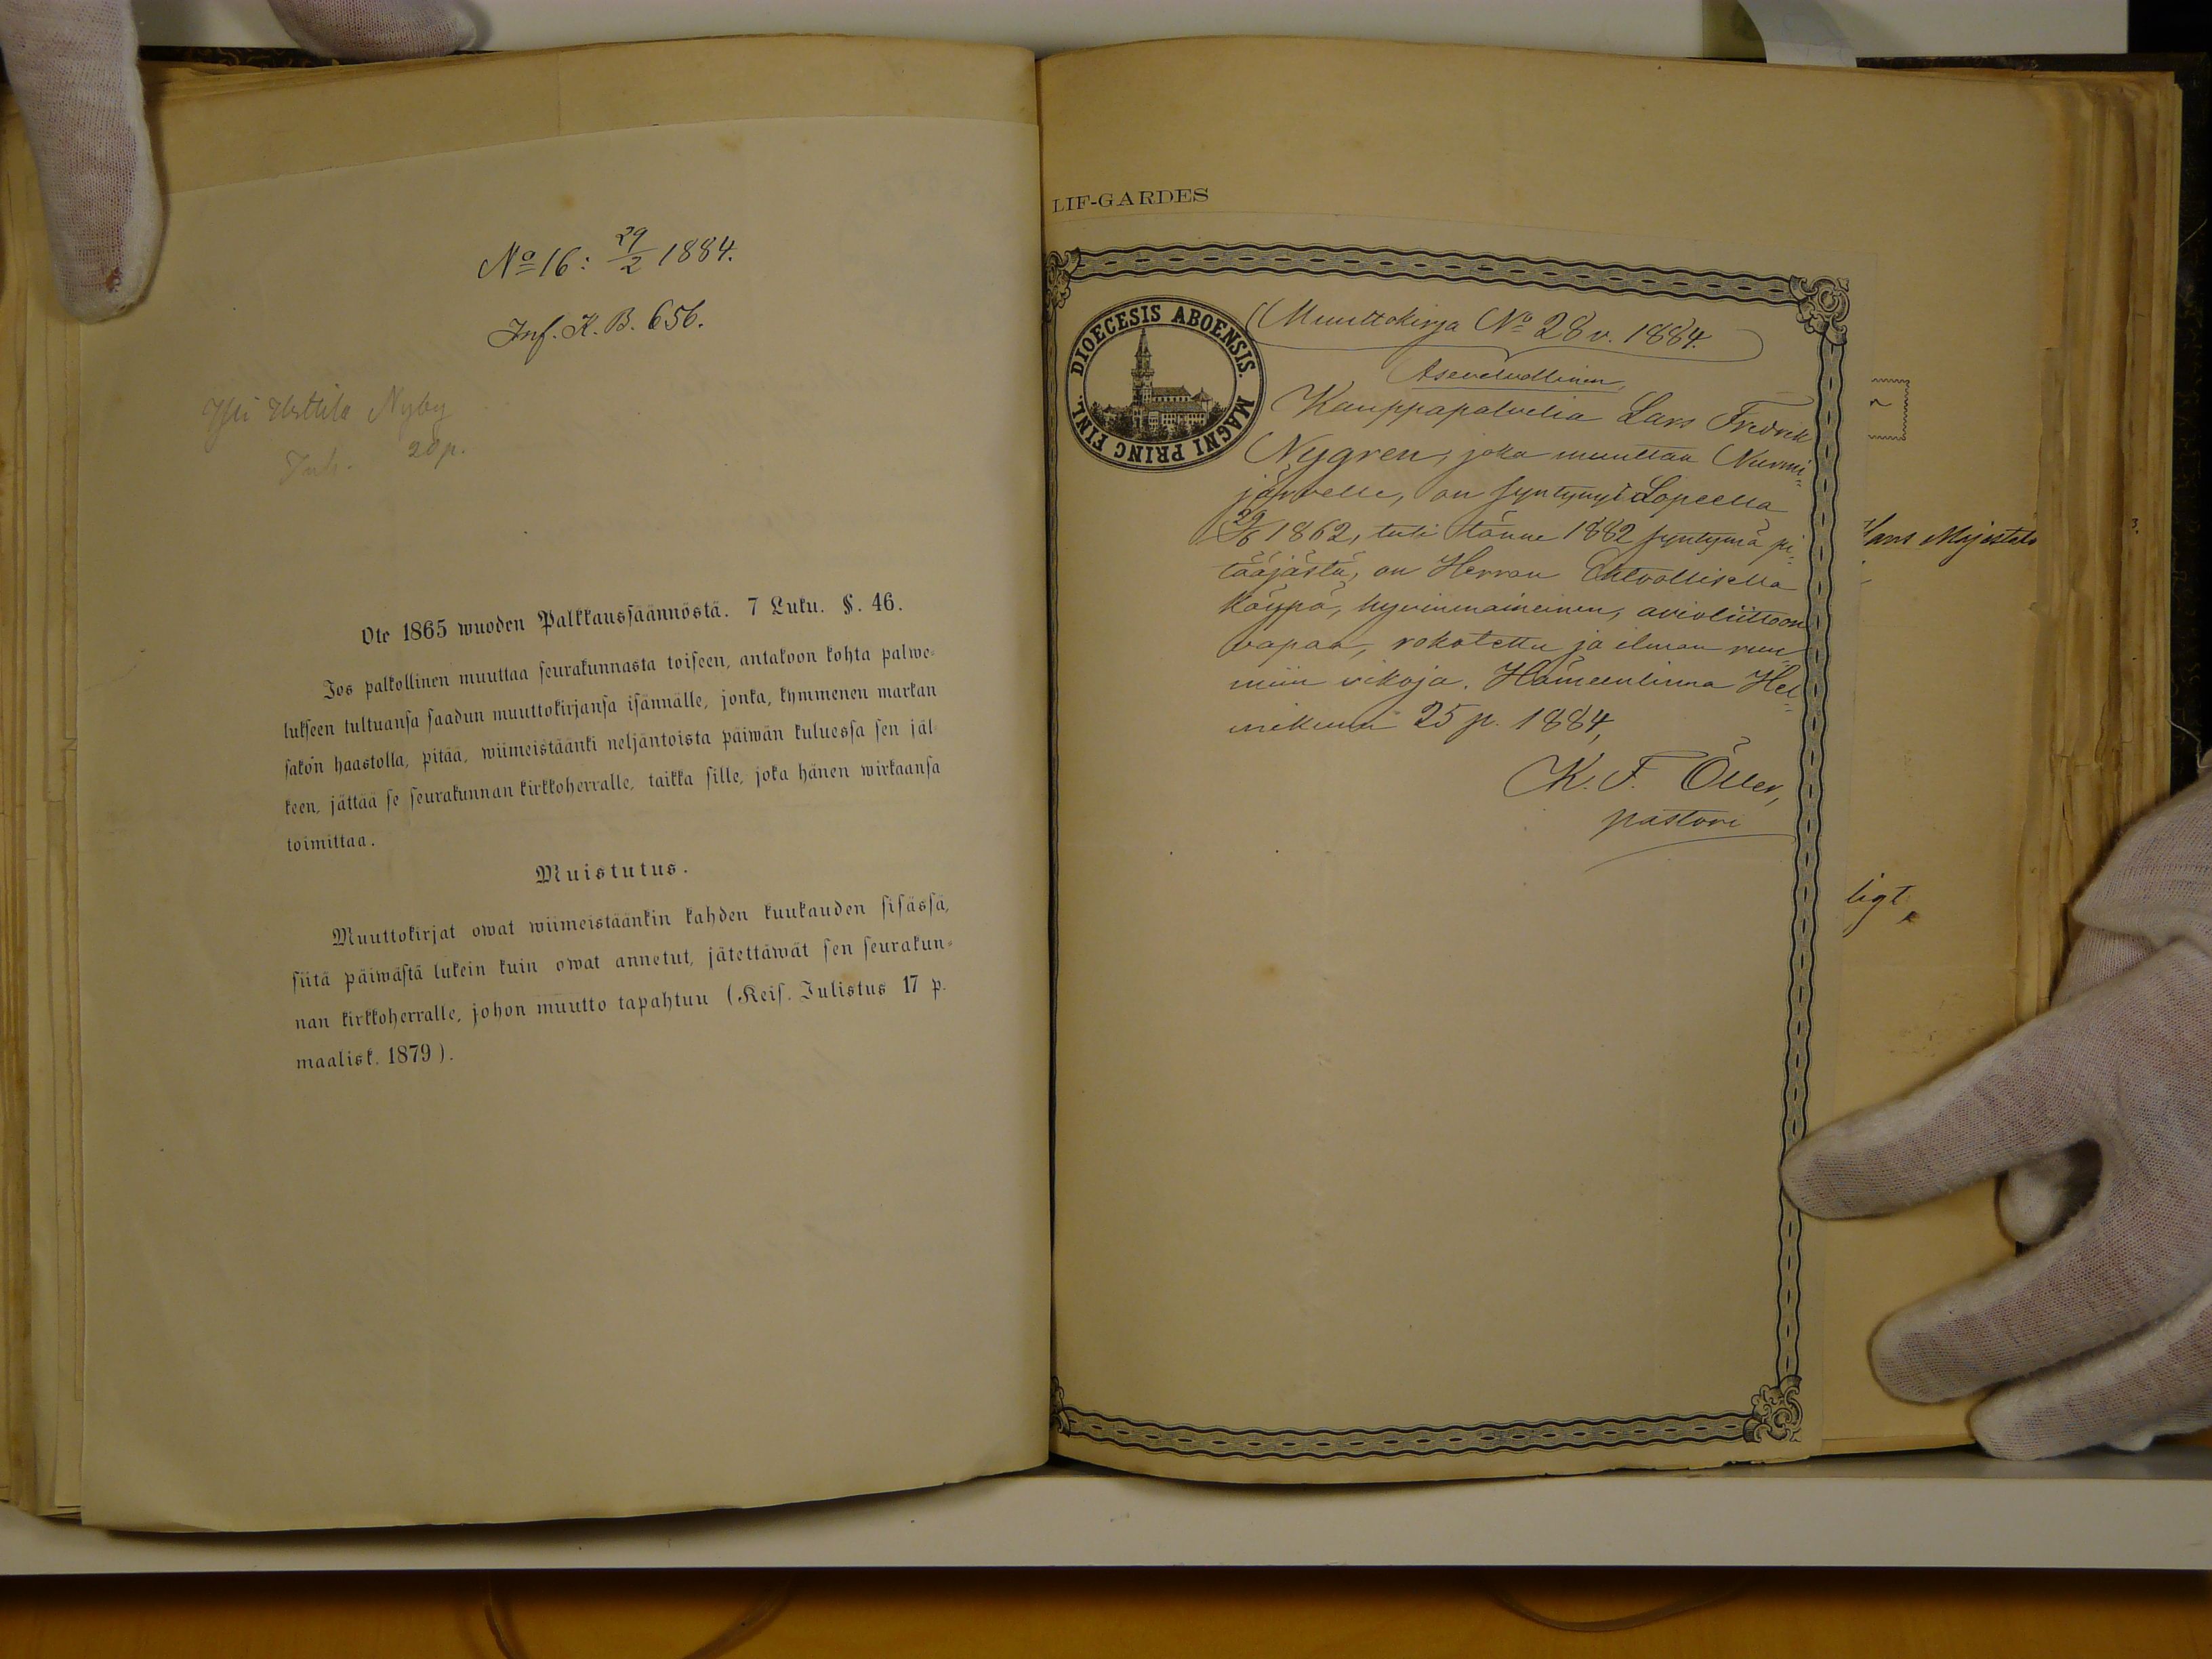 No 16: 29/2 1884.
Inf. K. B. 656.
Nyby
20 p.
Ote 1865 wuoden Palkkaussäännöstä. 7 Luku. §. 46.
Jos palkollinen muuttaa seurakunnasta toiseen, antakoon kohta palwe-
lukseen tultuansa saadun muuttokirjansa isännälle, jonka, kymmenen markan
sakon haastolla, pitää, wiimeistäänki neljäntoista päiwän kuluessa sen jäl-
keen, jättää se seurakunnan kirkkoherralle, taikka sille, joka hänen wirkaansa
toimittaa.
Muistutus.
Muuttokirjat owat wiimeistäänkin kahden kuukauden sisässä,
siitä päiwästä lukein kuin owat annetut, jätettäwät sen seurakun-
nan kirkkoherralle, johon muutto tapahtuu (Keis. Julistus 17 p.
maalisk. 1879).
LIF-GARDES
DIOECESIS ABOENSIS. MAGNI PRINC FINL.
Muuttokirja No 28 v. 1884.
Asevelvollinen,
Kauppapalvelia Lars Fredrik
Nygren, joka muuttaa Nurmi-
järvelle, on syntynyt Lopella
29/6 1862, tuli tänne 1882 syntymä pi-
täjästä, on Herran Ehtoollisella
käypä, hyvinmaineinen, avioliittoon
vapaa, rokotettu ja ilman ruu-
miin vikoja. Hämeenlinna Hel-
mikuun 25 p. 1884,
K. F. Öller,
pastori
Hans Majestäts
ligt